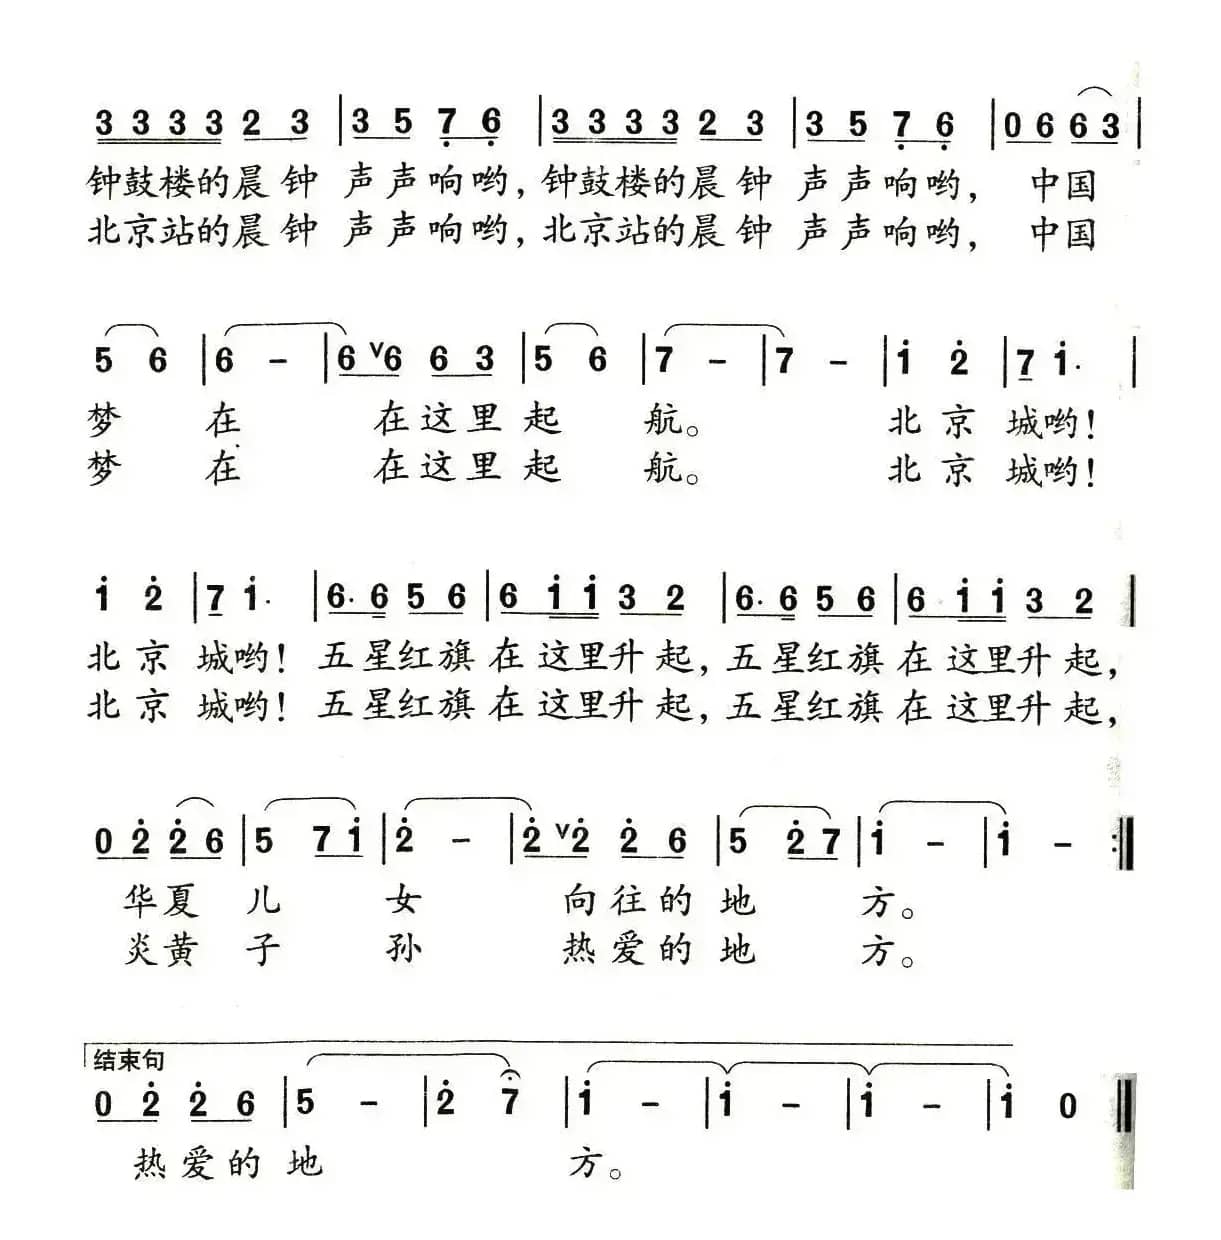 3 3 3 3 2 3 | 3 5 7̣ 6̣ | 3 3 3 3 2 3 | 3 5 7̣ 6̣ | 0 6 6 3 |
钟鼓楼的晨钟 声声响哟，钟鼓楼的晨钟 声声响哟， 中国
北京站的晨钟 声声响哟，北京站的晨钟 声声响哟， 中国
5 6 | 6 - | 6 ∨6 6 3 | 5 6 | 7 - | 7 - | 1̇ 2̇ | 7 1̇· |
梦 在 在这里起 航。 北京 城哟！
梦 在 在这里起 航。 北京 城哟！
1̇ 2̇ | 7 1̇· | 6· 6 5 6 | 6 1̇ 1̇ 3 2 | 6· 6 5 6 | 6 1̇ 1̇ 3 2 |
北京 城哟！五星红旗在这里升起，五星红旗在这里升起，
北京 城哟！五星红旗在这里升起，五星红旗在这里升起，
0 2̇ 2̇ 6 | 5 7 1̇ | 2̇ - | 2̇ ∨2̇ 2̇ 6 | 5 2̇ 7 | 1̇ - | 1̇ - :‖
华夏 儿 女 向往的地 方。
炎黄 子 孙 热爱的地 方。
结束句
0 2̇ 2̇ 6 | 5 - | 2̇ 7 | 1̇ - | 1̇ - | 1̇ - | 1̇ 0 ‖
热爱的 地 方。